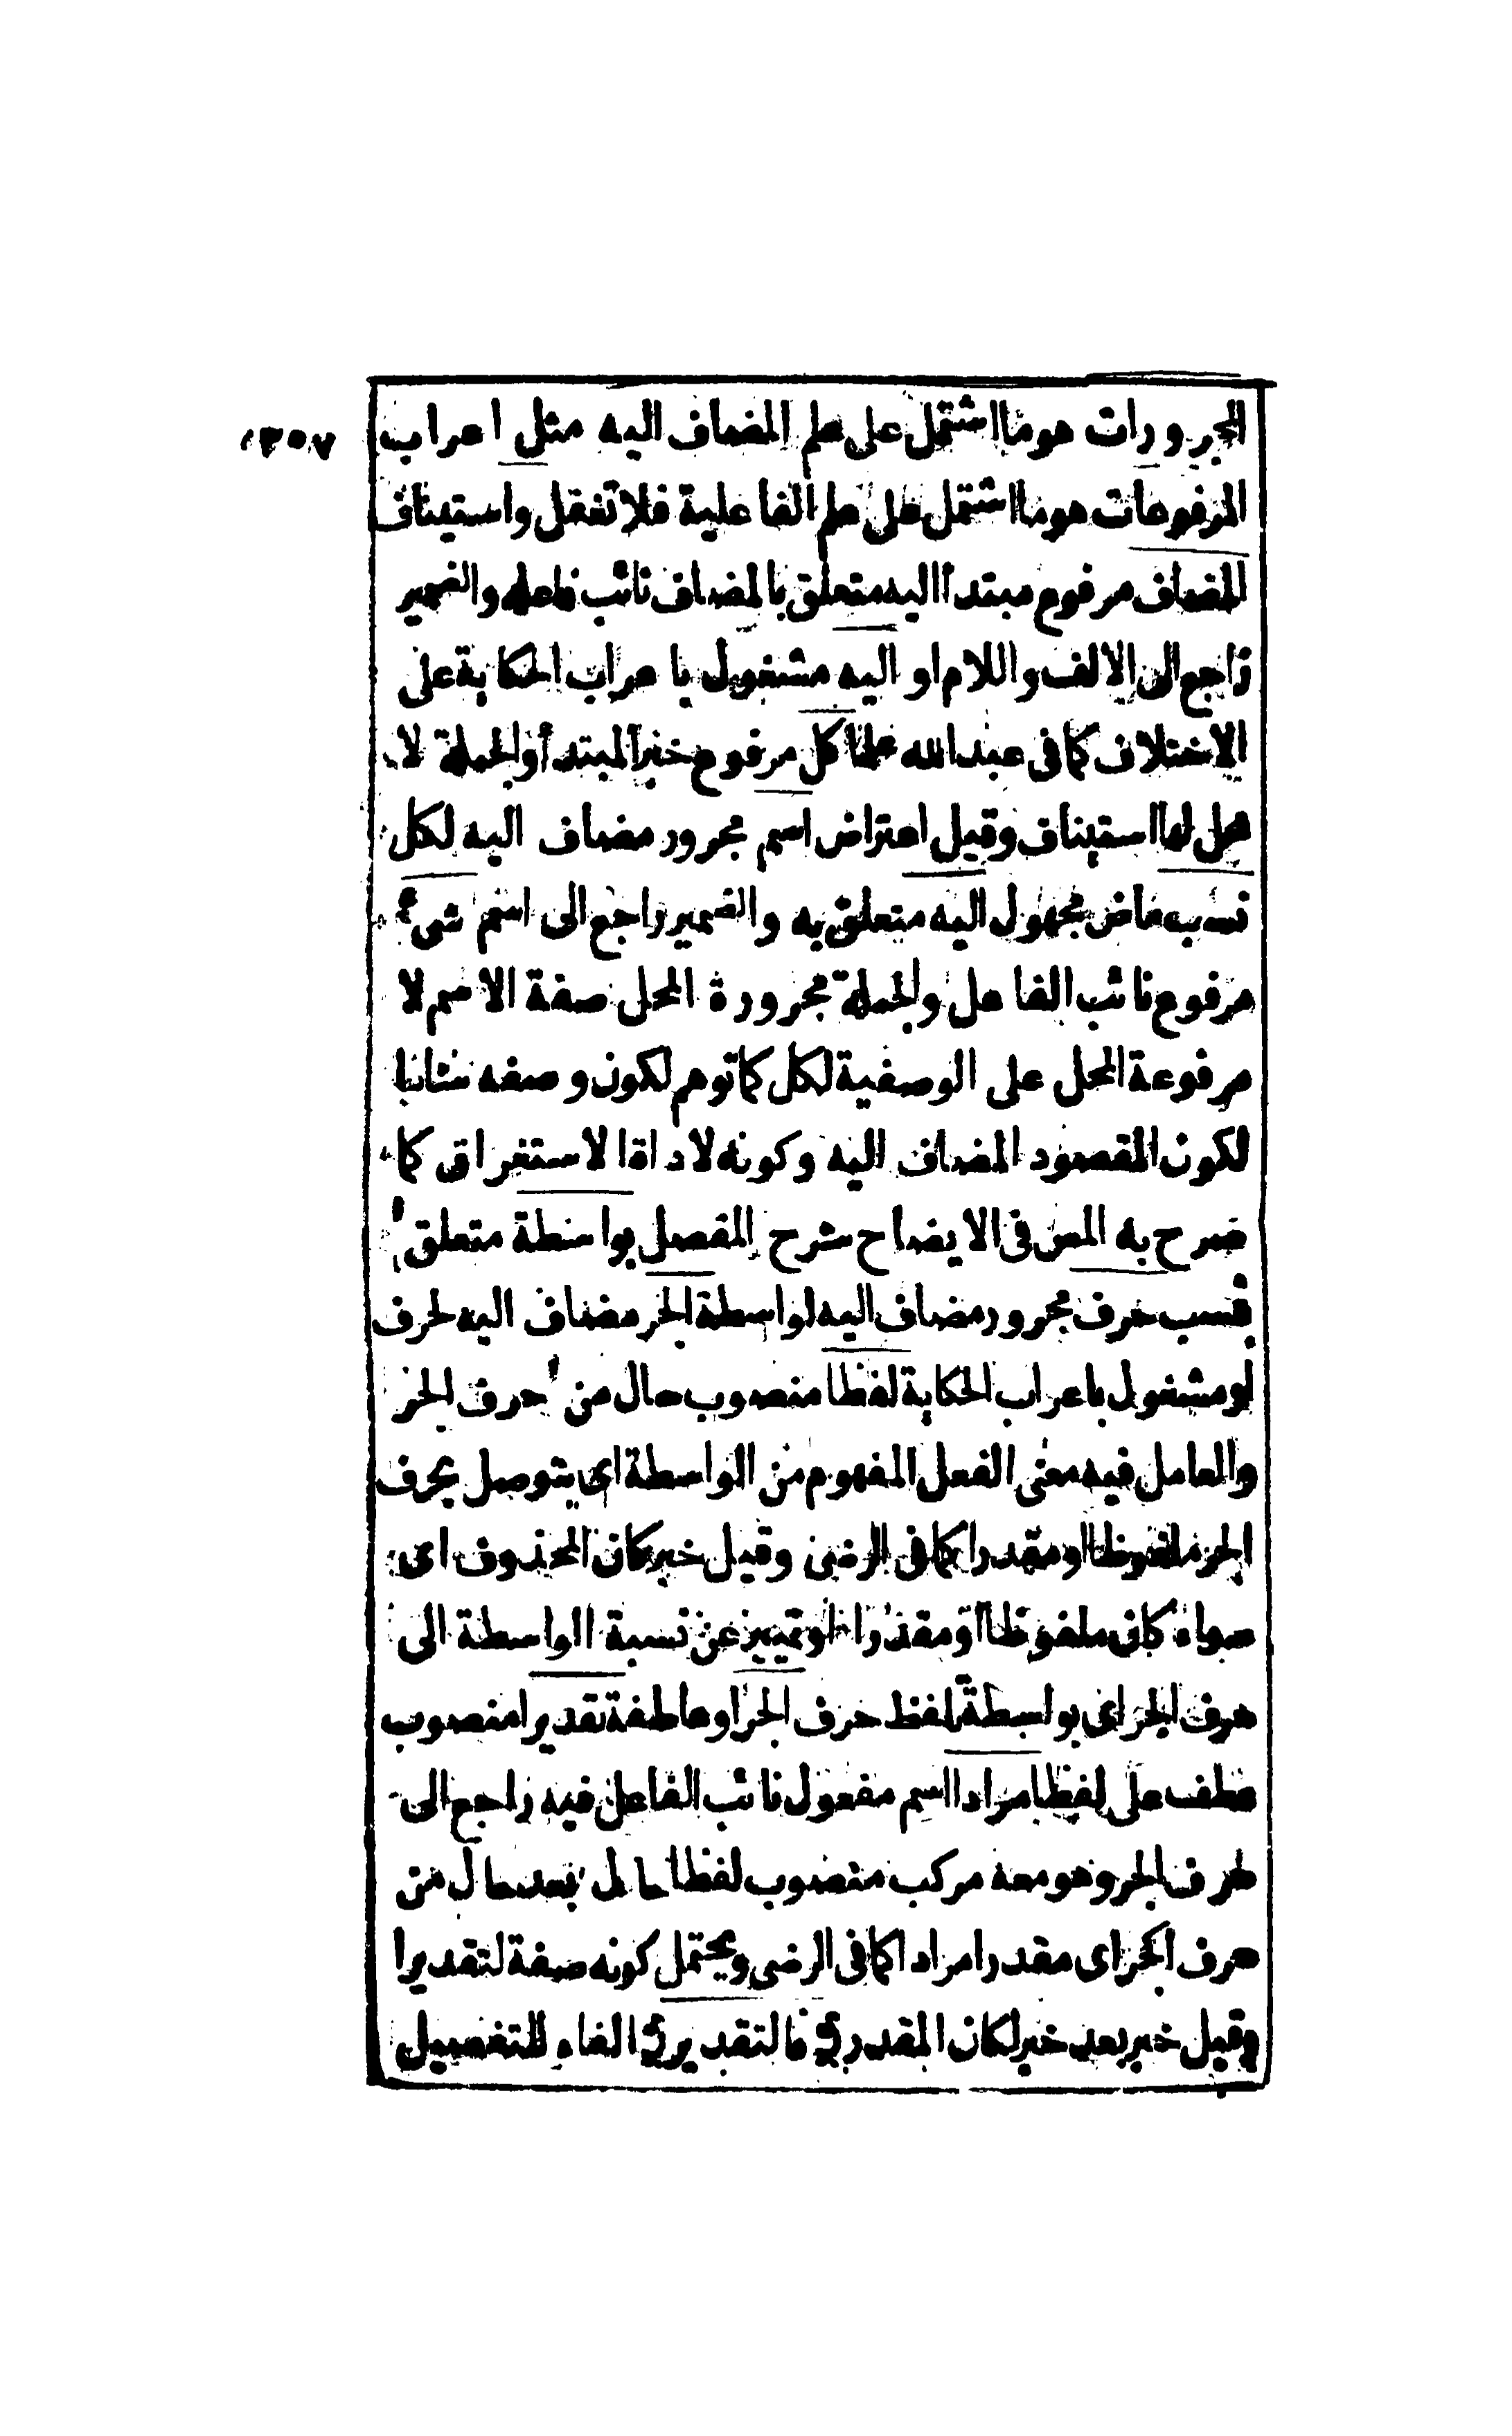 المجرورات هو ما اشتمل على علم المضاف اليه مثل اعراب
المرفوعات هو ما اشتمل على علم الفاعلية فلا تغفل واستيناف
المضاف مرفوع مبتدأ اليه متعلق بالمضاف نائب فاعله والضمير
راجع الى الالف واللام او اليه مشغول باعراب الحكاية على
الاختلاف كما فى عبدالله علما كل مرفوع خبر المبتدأ والجملة لا
محل لها استيناف وقيل اعتراض اسم مجرور مضاف اليه لكل
نسب ماض مجهول اليه متعلق به والضمير راجع الى اسم شئ
مرفوع نائب الفاعل والجملة مجرورة المحل صفة الاسم لا
مرفوعة المحل على الوصفية لكل كما توهم لكون وصفه
لكون المقصود المضاف اليه وكونه لاداة الاستغراق كما
صرح به المص فى الايضاح شرح المفصل بواسطة متعلق
بنسب حرف مجرور مضاف اليه لواسطة الجر مضاف اليه لحرف
او مشغول باعراب الحكاية لفظا منصوب حال من حرف الجر
والعامل فيه معنى الفعل المفهوم من الواسطة اى يتوصل بحرف
الجر ملفوظا او مقدرا كما فى الرضى وقيل خبر كان المحذوف اى
سواء كان ملفوظا او مقدرا او تمييز عن نسبة الواسطة الى
حرف الجر اى بواسطة لفظ حرف الجر او عاطفة تقديرا منصوب
عطف على لفظا مرادا اسم مفعول نائب الفاعل فيه راجع الى
حرف الجر وهو معه مركب منصوب لفظا حال بعد حال من
حرف الجر اى مقدرا مرادا كما فى الرضى ويحتمل كونه صفة لتقديرا
وقيل خبر بعد خبر لكان المقدر فالتقدير الفاء للتفصيل
٣٥٧